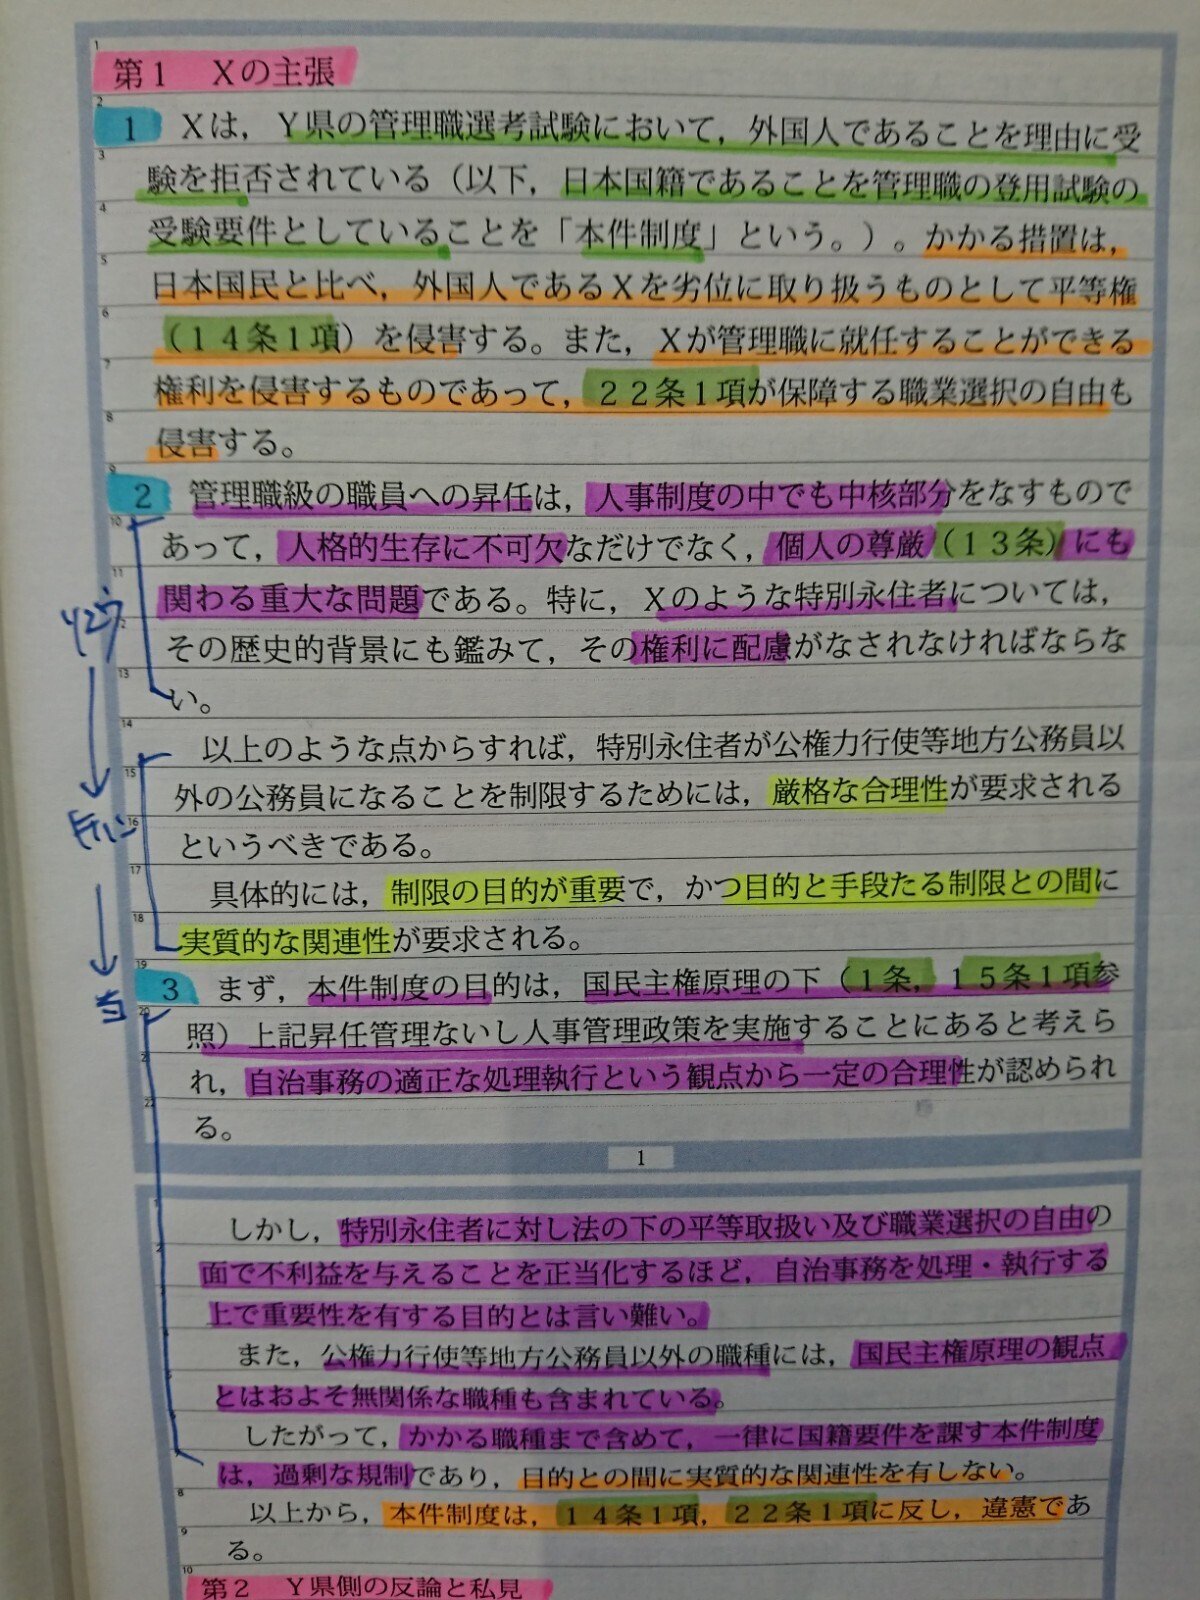 第1 Xの主張
1 Xは，Y県の管理職選考試験において，外国人であることを理由に受
験を拒否されている（以下，日本国籍であることを管理職の登用試験の
受験要件としていることを「本件制度」という。）。かかる措置は，
日本国民と比べ，外国人であるXを劣位に取り扱うものとして平等権
（14条1項）を侵害する。また，Xが管理職に就任することができる
権利を侵害するものであって，22条1項が保障する職業選択の自由も
侵害する。
2 管理職級の職員への昇任は，人事制度の中でも中核部分をなすもので
あって，人格的生存に不可欠なだけでなく，個人の尊厳（13条）にも
関わる重大な問題である。特に，Xのような特別永住者については，
その歴史的背景にも鑑みて，その権利に配慮がなされなければならな
い。
以上のような点からすれば，特別永住者が公権力行使等地方公務員以
外の公務員になることを制限するためには，厳格な合理性が要求される
というべきである。
具体的には，制限の目的が重要で，かつ目的と手段たる制限との間に
実質的な関連性が要求される。
3 まず，本件制度の目的は，国民主権原理の下（1条，15条1項参
照）上記昇任管理ないし人事管理政策を実施することにあると考えら
れ，自治事務の適正な処理執行という観点から一定の合理性が認められ
る。
当
1
しかし，特別永住者に対し法の下の平等取扱い及び職業選択の自由の
面で不利益を与えることを正当化するほど，自治事務を処理・執行する
上で重要性を有する目的とは言い難い。
また，公権力行使等地方公務員以外の職種には，国民主権原理の観点
とはおよそ無関係な職種も含まれている。
したがって，かかる職種まで含めて，一律に国籍要件を課す本件制度
は，過剰な規制であり，目的との間に実質的な関連性を有しない。
以上から，本件制度は，14条1項，22条1項に反し，違憲であ
る。
第2 Y県側の反論と私見